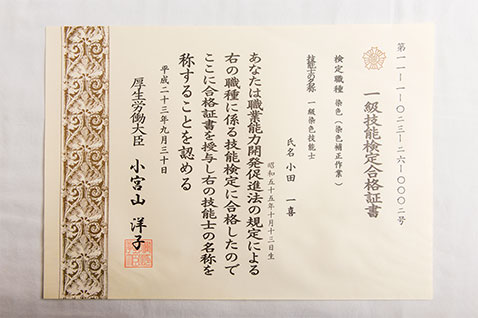 第一一-一-〇二三-二六-〇〇〇二号
一級技能検定合格証書
検定職種 染色(染色補正作業)
技能士の名称 一級染色技能士
氏名 小田 一喜
昭和五十五年十月十三日生
あなたは職業能力開発促進法の規定による
右の職種に係る技能検定に合格したので
ここに合格証書を授与し右の技能士の名称を
称することを認める
平成二十三年九月三十日
厚生労働大臣 小宮山 洋子